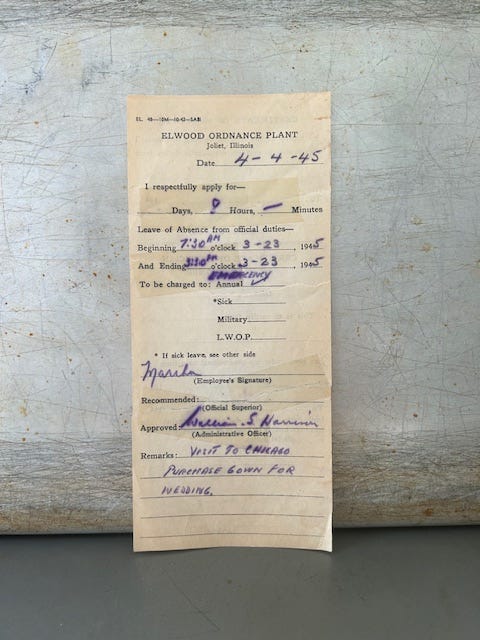 ELWOOD ORDNANCE PLANT
Joliet, Illinois
Date 4-4-45
I respectfully apply for—
Days, 8 Hours, — Minutes
Leave of Absence from official duties—
Beginning 7:30 AM o'clock 3-23, 1945
And Ending 3:30 PM o'clock 3-23, 1945
EMERGENCY
To be charged to: Annual ✓
*Sick
Military
L.W.O.P.
* If sick leave, see other side
(Employee's Signature)
Recommended:
(Official Superior)
Approved: William S.
(Administrative Officer)
Remarks: VISIT TO CHICAGO
PURCHASE GOWN FOR
WEDDING.